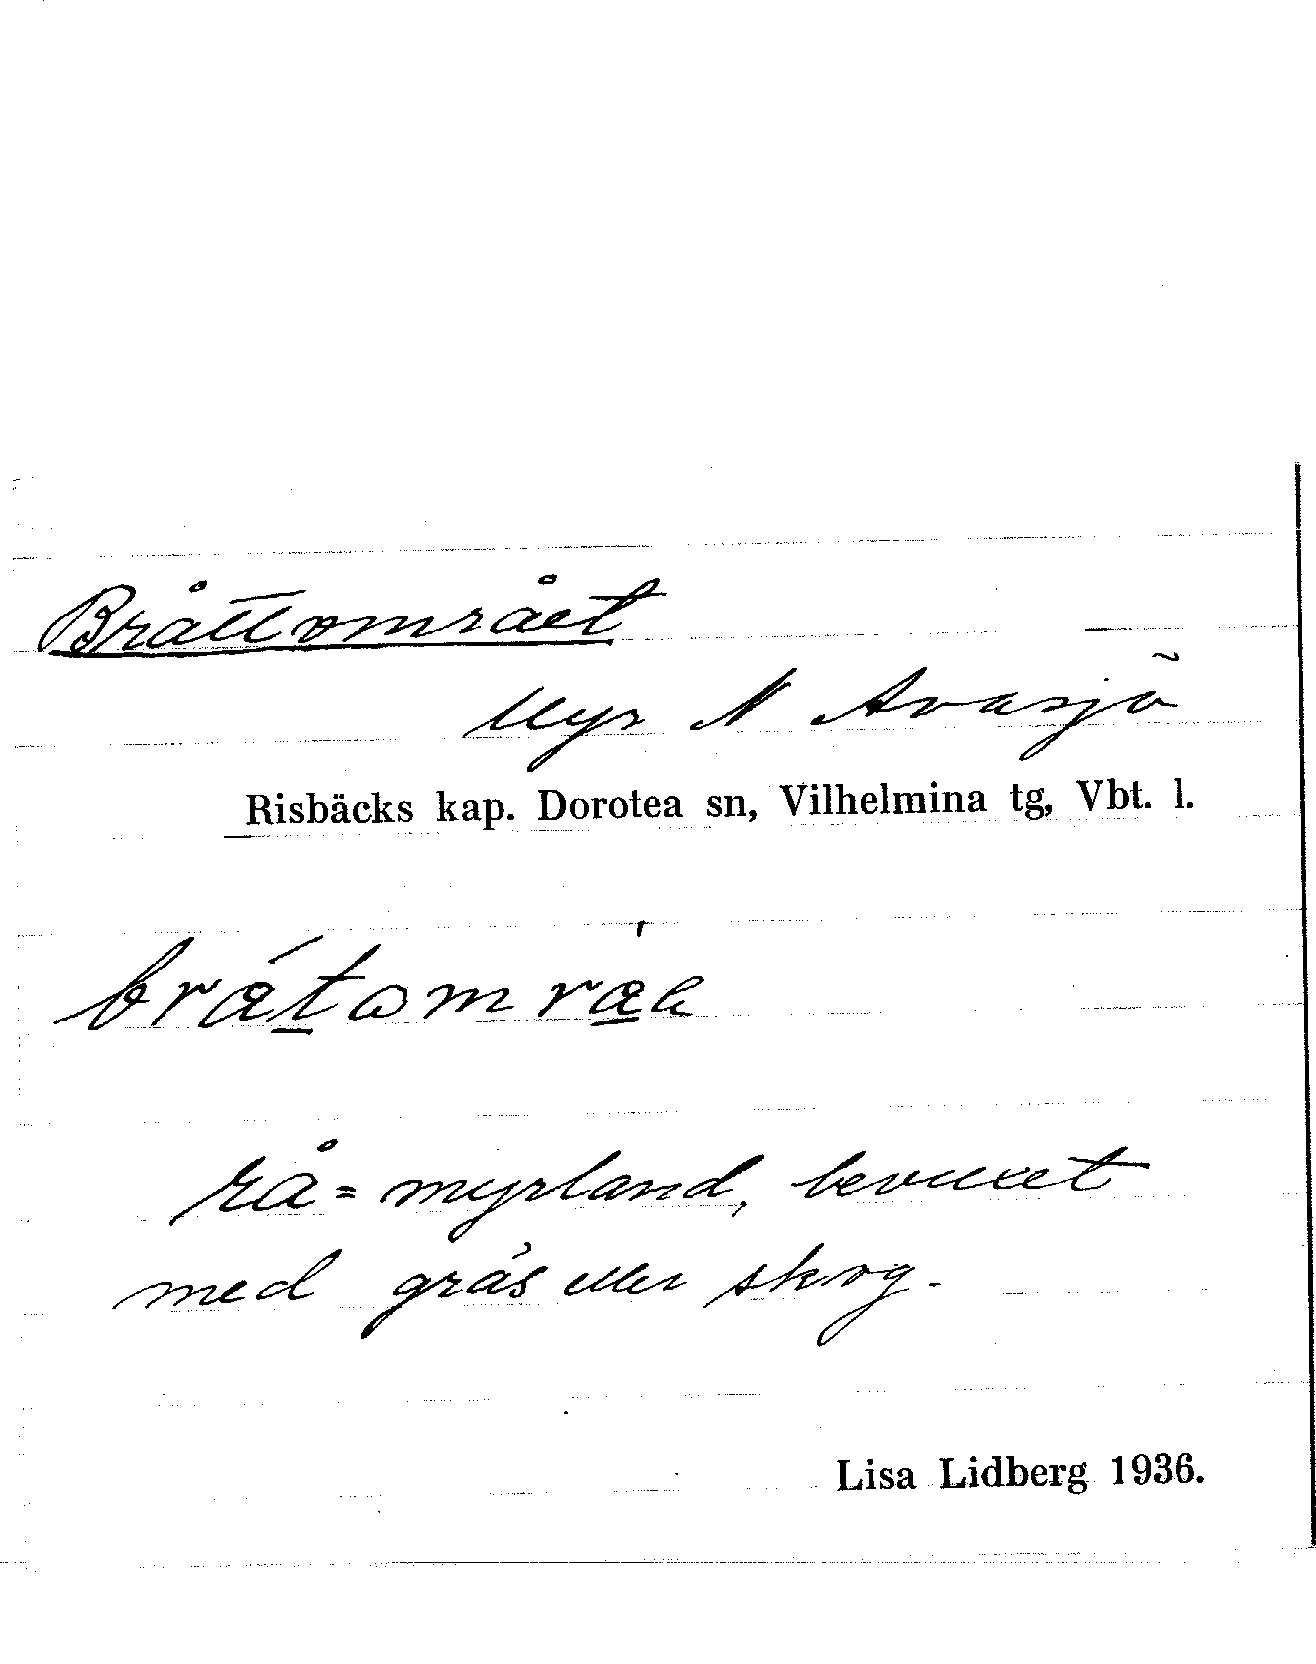 Bråttområet
Myr N Avasjö
Risbäcks kap. Dorotea sn, Vilhelmina tg, Vbt. l.
rå = myrland, bevuxet
med gräs eller skog.
Lisa Lidberg 1936.